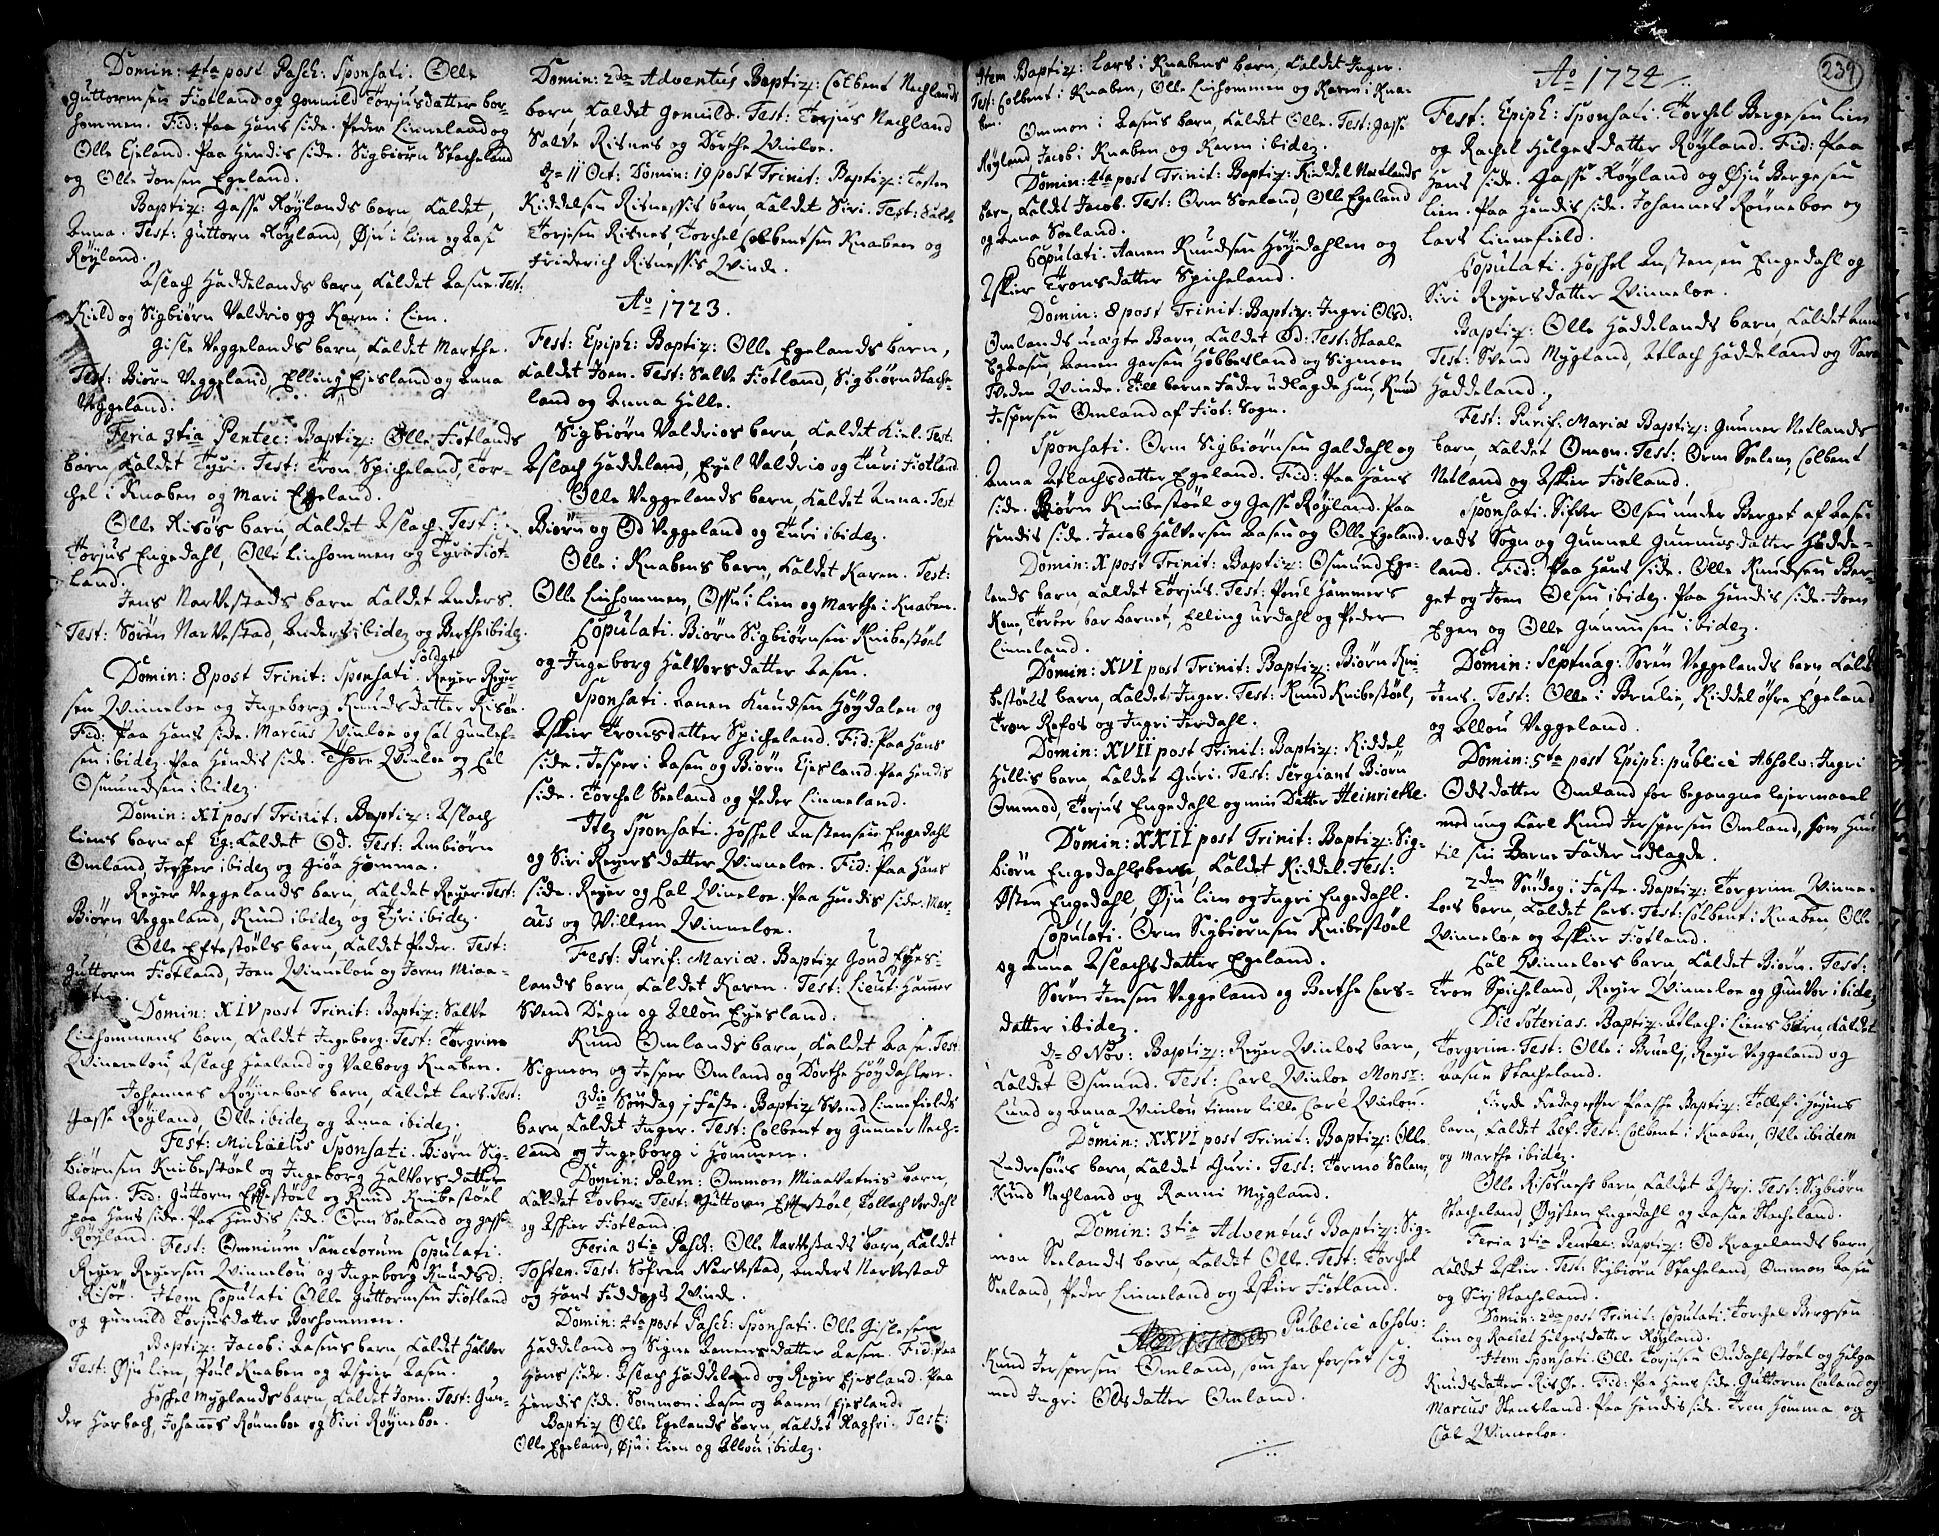 Domin: 4ta post Pasch: Sponsati. Olle
Guttormsen Fiotland og Gonuild Torjusdatter bor-
hommen. Fid: Paa Hans side. Peder Linneland og
Olle Ejeland. Paa Hendis side. Sigbiørn Stacheland
og Olle Jonsen Egeland.
Baptiz: Gasse Røylands barn, Kaldet,
Anna. Test: Guttorm Røyland, Øju i Lien og Aase
Røyland.
Aslach Haddelands barn, Kaldet Aasne. Test:
Kield og Sigbiørn Valdrio og Karen i Lien.
Gisle Veggelands barn, Kaldet Marthe.
Test: Biørn Veggeland, Elling Ejesland og Anna
Veggeland.
Feria 3tia Pentec: Baptiz: Olle Fiotlands
barn, Kaldet Tyri. Test: Tron Spicheland, Tor-
chel i Knaben og Mari Egeland.
Olle Risøs barn, Kaldet Aslach. Test:
Torjus Engedahl, Olle Linhommen og Tyri Fiot-
land.
Jens Narvestads barn Kaldet Anders.
Test: Sørén Narvestad, Anders ibidem og Berthe ibidem.
Domin: 8 post Trinit: Sponsati. Reyer Reyer-
sen Quinneloe og Ingeborg Knudsdatter Risøe.
Fid: Paa Hans side. Marcus Quinloe og Cal Gunles-
sen ibidem. Paa Hendis side. Thore Quinloe og Cal
Osmundsen ibidem.
Domin: XI post Trinit: Baptiz: Aslach
Liens barn af Eg: Kaldet Od. Test: Anbiørn
Omland, Jesper ibidem og Giøa Homma.
Reyer Veggelands barn, Kaldet Reyer. Test:
Biørn Veggeland, Knud ibidem og Tyri ibidem.
Olle Eftestøels barn, Kaldet Peder. Test:
Guttorm Fiotland, Joen Quinnelou og Joren Miaa-
Domin: XIV post Trinit: Baptiz: Salve
Linhommens barn, Kaldet Ingeborg. Test: Torgrim
Quinnelou, Aslach Hæeland og Valborg Knaben.
Johannes Røyneboes barn, Kaldet Lars. Test:
Gasse Røyland, Olle ibidem og Anna ibidem.
Fest: Michaelis Sponsati. Biørn Sig-
biørnsen Knibestøel og Ingeborg Halvorsdatter
Aasen. Fid: Guttorm Eftestøel og Knud Knibestøel
paa Hans side. Paa Hendis side. Orm Soeland og Gasse
Røyland.
Fest: Omnium Sanctorum Copulati.
Reyer Reyersen Quinnelou og Ingeborg Knudsd:
Risøe. Item Copulati Olle Guttormsen Fiotland
og Gunuld Torjusdatter Borhommen.
Baptiz: Jacob i Aasens barn, Kaldet Halvor
Test: Øju Lien, Poul Knaben og Asgier Aasen.
Høskel Myglands barn, Kaldet Joen. Test: Gun-
der Harbach, Johannes Rønneboe og Siri Røyneboe.
Domin: 2da Adventus Baptiz: Colbent Nechlands
barn Kaldet Gonuld. Test: Torjus Nechland
Salve Risnes og Dorthe Quinloe.
D= 11 Oct: Domin: 19 post Trinit: Baptiz: Tosten
Kiddelsen Risnessis barn, Kaldet Siri. Test: Salve
Torjesen Risnes, Torchel Colbentsen Knaben og
Friderich Risnessis Quinde.
Ao 1723.
Fest: Epiph: Baptiz: Olle Egelands barn,
Kaldet Joen. Test: Salve Fiotland, Sigbiørn Stache-
land og Anna Hille.
Sigbiørn Valdrios barn, Kaldet Kiel. Test:
Aslach Haddeland, Eyel Valdrio og Turi Fiotland
Olle Veggelands barn, Kaldet Anna. Test
Biørn og Od Veggeland og Turi ibidem.
Olle i Knabens barn, Kaldet Karen. Test:
Olle Linhommen, Ossu i Lien og Marthe i Knaben.
Copulati. Biørn Sigbiørnsen Knibestøel
og Ingeborg Halvorsdatter Aasen.
Sponsati. Aanen Knudsen Høydalen og
Askier Tronsdatter Spicheland. Fid: Paa Hans
side. Jesper i Aasen og Biørn Ejesland. Paa Hendis
side. Torchel Seeland og Peder Linneland.
Item Sponsati. Høskel Anstensen Engedahl
og Siri Reyersdatter Quinneloe. Fid: Paa Hans
side. Reyer og Cal Quineloe. Paa Hendis side. Mar-
cus og Willem Quinneloe.
Fest: Purif: Mariæ. Baptiz Gond Eyes-
lands barn, Kaldet Karen. Test: Lieut: Hamer
Svend Degn og Allou Eyesland.
Knud Omlands barn, Kaldet Aase. Test
Sigmon og Jesper Omland og Dorthe Høydahlen.
3die Søndag i Faste. Baptiz Svend Linnefields
barn, Kaldet Inger. Test: Colbent og Gunner Nech-
land og Ingeborg i Hommen.
Domin: Palm: Ommon Miaavatnis barn,
Kaldet Torber. Test: Guttorm Eftestøel, Tollach Urdahl
og Askier Fiotland.
Feria 3tia Pasch: Olle Narvestads barn, Kaldet
Tosten. Test: Søfren Narvestad, Anders Narvestad
og Hans Fiddegs Quinde.
Domin: 4ta post Pasch: Sponsati. Olle Gislesen
Haddeland og Signe Aanensdatter Aasen. Fid: Paa
Hans side. Aslach Haddeland og Reyer Ejesland. Paa
Hendis side. Sommon i Aasen og Aanen i Ejesland.
Baptiz Olle Egelands barn, Kaldet Ragfri. Test:
Olle Egeland, Øju i Lien og Allou ibidem.
Item Baptiz: Lars i Knabens barn, Kaldet Inger.
Test: Colbent i Knaben, Olle Linhommen og Karen i Kna-
ben.
Ommon i Aasens barn, Kaldet Olle. Test: Gasse
Røyland, Jacob i Knaben og Karen ibidem.
Domin: 4ta post Trinit: Baptiz: Kiddel Netlands
barn, Kaldet Jacob. Test: Orm Soeland, Olle Egeland
og Anna Soeland.
Copulati. Aanen Knudsen Høydahlen og
Askier Tronsdatter Spicheland.
Domin: 8 post Trinit: Baptiz: Ingri Olsd:
Omlands uægte Barn, Kaldet Od. Test: Staale
Egeasen, Aanen Larsen Hobbesland og Sigmon
Tveden Quinde. Till Barne Fader udlagde Hun, Knud
Jespersen Omland af Fiot: Sogn.
Sponsati. Orm Sigbiørnsen Galdahl og
Anna Aslachsdatter Egeland. Fid: Paa Hans
side. Biørn Knibestøel og Gasse Røyland. Paa
Hendis side. Jacob Halversen Aasen og Olle Egeland.
Domin: X post Trinit: Baptiz: Osmund Ege-
lands barn, Kaldet Torjus. Test: Poul Hammers
Kone, Torber bar barnet, Elling Urdahl og Peder
Linneland.
Domin: XVI post Trinit: Baptiz: Biørn Kni-
bestøels barn, Kaldet Inger. Test: Knud Knibestøel,
Tron Refos og Ingri Jerdahl.
Domin: XVII post Trinit: Baptiz: Kiddel
Hillis barn Kaldet Guri. Test: Sergiant Biørn
Ommod, Torjus Engedahl og min Datter Heinricke.
Domin: XXII post Trinit: Baptiz: Sig-
biørn Engedahls barn, Kaldet Kiddel. Test:
Østen Engedahl, Øju Lien og Ingri Engedahl.
Copulati. Orm Sigbiørnsen Knibestøel
og Anna Aslachsdatter Egeland.
Søren Jensen Veggeland og Berthe Lars-
datter ibidem.
D= 8 Nov: Baptiz: Reyer Quinloes barn,
Kaldet Osmund. Test: Carl Quinloe Monsr:
Lund og Anna Quinlou tiener lille Carl Quinlou.
Domin: XXVI post Trinit: Baptiz: Olle
Andresøns barn, Kaldet Guri. Test: Tormo Solem,
Knud Nechland og Ranni Mygland.
Domin: 3tia Adventus Baptiz: Sig-
mon Seelands barn, Kaldet Olle. Test: Torchel
Seeland, Peder Linneland og Askier Fiotland.
Publicè absolv:
Knud Jerspersen Omland, som har forseet sig
med Ingri Odsdatter Omland.
239
Ao 1724
Fest: Epiph: Sponsati. Torchel Bergesen Lien
og Rachel Helgesdatter Røyland. Fid: Paa
Hans side. Gasse Røyland og Øju Bergesen
Lien. Paa Hendis side. Johannes Rønneboe og
Lars Linnefield.
Copulati. Høskel Anstensen Engedahl og
Siri Reyersdatter Quinneloe.
Baptiz: Olle Haddelands barn, Kaldet Anna
Test: Svend Mygland, Aslach Haddeland og Sara
Haddeland.
Fest: Purif: Mariæ Baptiz: Gunner Netlands
barn, Kaldet Omon. Test: Orm Soelem Colbent
Netland og Askier Fiotland.
Sponsati. Sifver Olsen under Berget af Aase-
rads Sogn og Gunnel Gunmusdatter Hadde-
land. Fid: Paa Hans side. Olle Knudsen Ber-
get og Joen Olsen ibidem. Paa Hendis side. Joen
Egen og Olle Gunmsen ibidem.
Domin: Septuag: Sørén Veggelands barn Kaldet
Jens. Test: Olle i Brulie, Kiddel Øfre Egeland
og Allou Veggeland.
Domin: 5ta post Epiph: publicè Absolv: Ingri
Odsdatter Omland for begangne Lejermaael
med ung Karl Knud Jerspersen Omland, som Hun
til sin Barne Fader udlagde.
2den Søndag i Faste. Baptiz: Torgrim Quinne-
loes barn, Kaldet Lars. Test: Colbent i Knaben, Olle
Quinneloe og Askier Fiotland.
Cal Quinneloes barn, Kaldet Biørn. Test:
Tron Spicheland, Reyer Quinneloe og Gunvor ibidem
Die Soterias. Baptiz. Aslach i Liens barn, Kaldet
Torgrim. Test: Olle i Bruelj, Reyer Veggeland og
Aasne Stacheland.
Fierde Fredag efter Paaske Baptiz: Tollef i Høyens
barn, Kaldet Alf. Test: Colbent i Knaben, Olle ibidem
og Marthe ibidem.
Olle Risøsnes barn, Kaldet Astrj. Test: Sigbiørn
Stacheland, Øysten Engedahl og Aasne Stacheland.
Feria 3tia Pentec: Baptiz: Od Kragelands barn,
Kaldet Askier. Test: Sigbiørn Stacheland, Ommon Aasen
og Siri Stacheland.
Domin: 2da post Trinit: Copulati. Torchel Bergesen
Lien og Rachel Helgesdatter Røyland.
Item Sponsati. Olle Torjusen Oudahlstøel og Helga
Knudsdatter Risøe. Fid: Paa Hans side. Guttorm Eieland og
Marcus Stensland. Paa Hendis side. Tron Homma og
Cal Quinneloe.